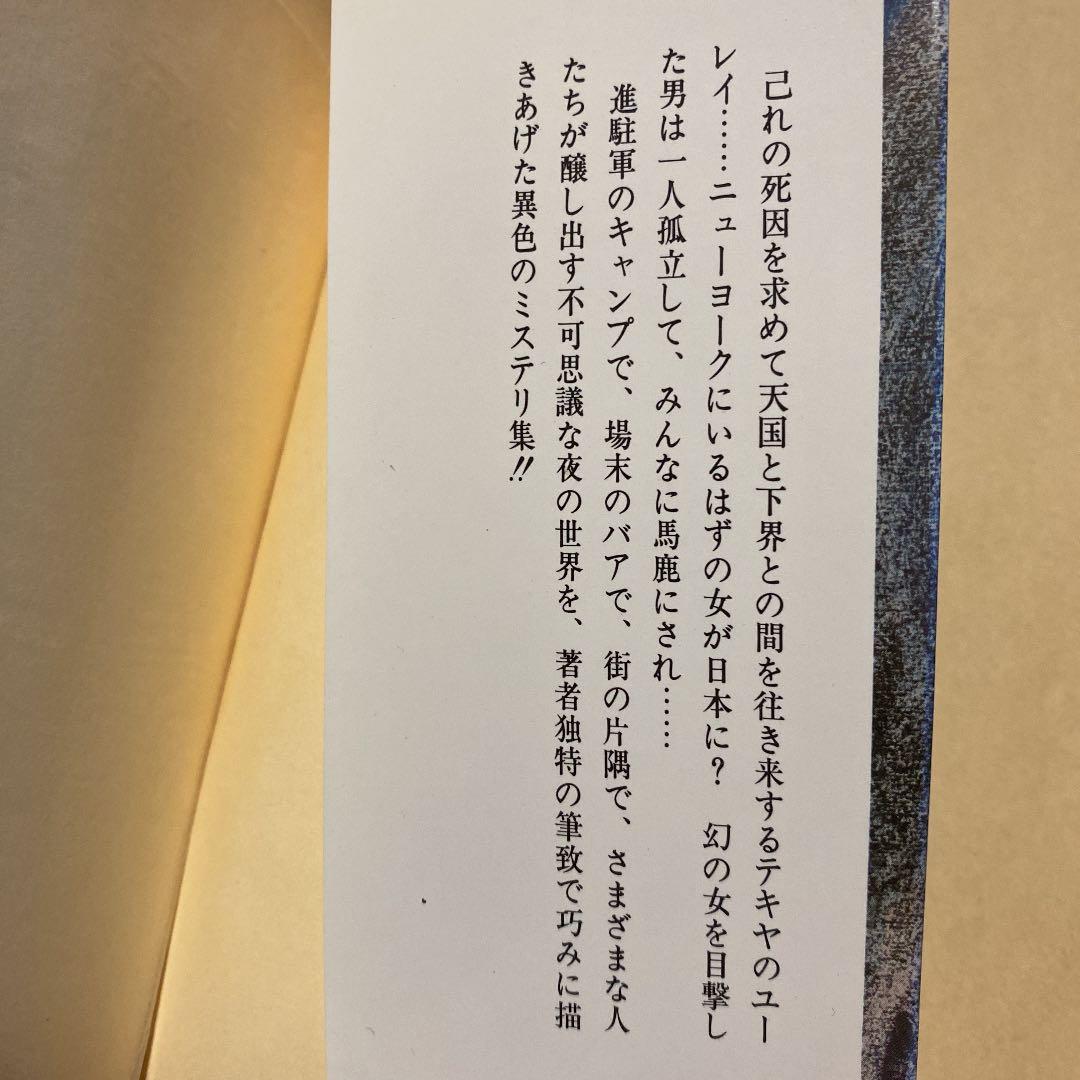 己れの死因を求めて天国と下界との間を往き来するテキヤのユー
レイ……ニューヨークにいるはずの女が日本に？　幻の女を目撃し
た男は一人孤立して、みんなに馬鹿にされ……
　進駐軍のキャンプで、場末のバアで、街の片隅で、さまざまな人
たちが醸し出す不可思議な夜の世界を、著者独特の筆致で巧みに描
きあげた異色のミステリ集!!